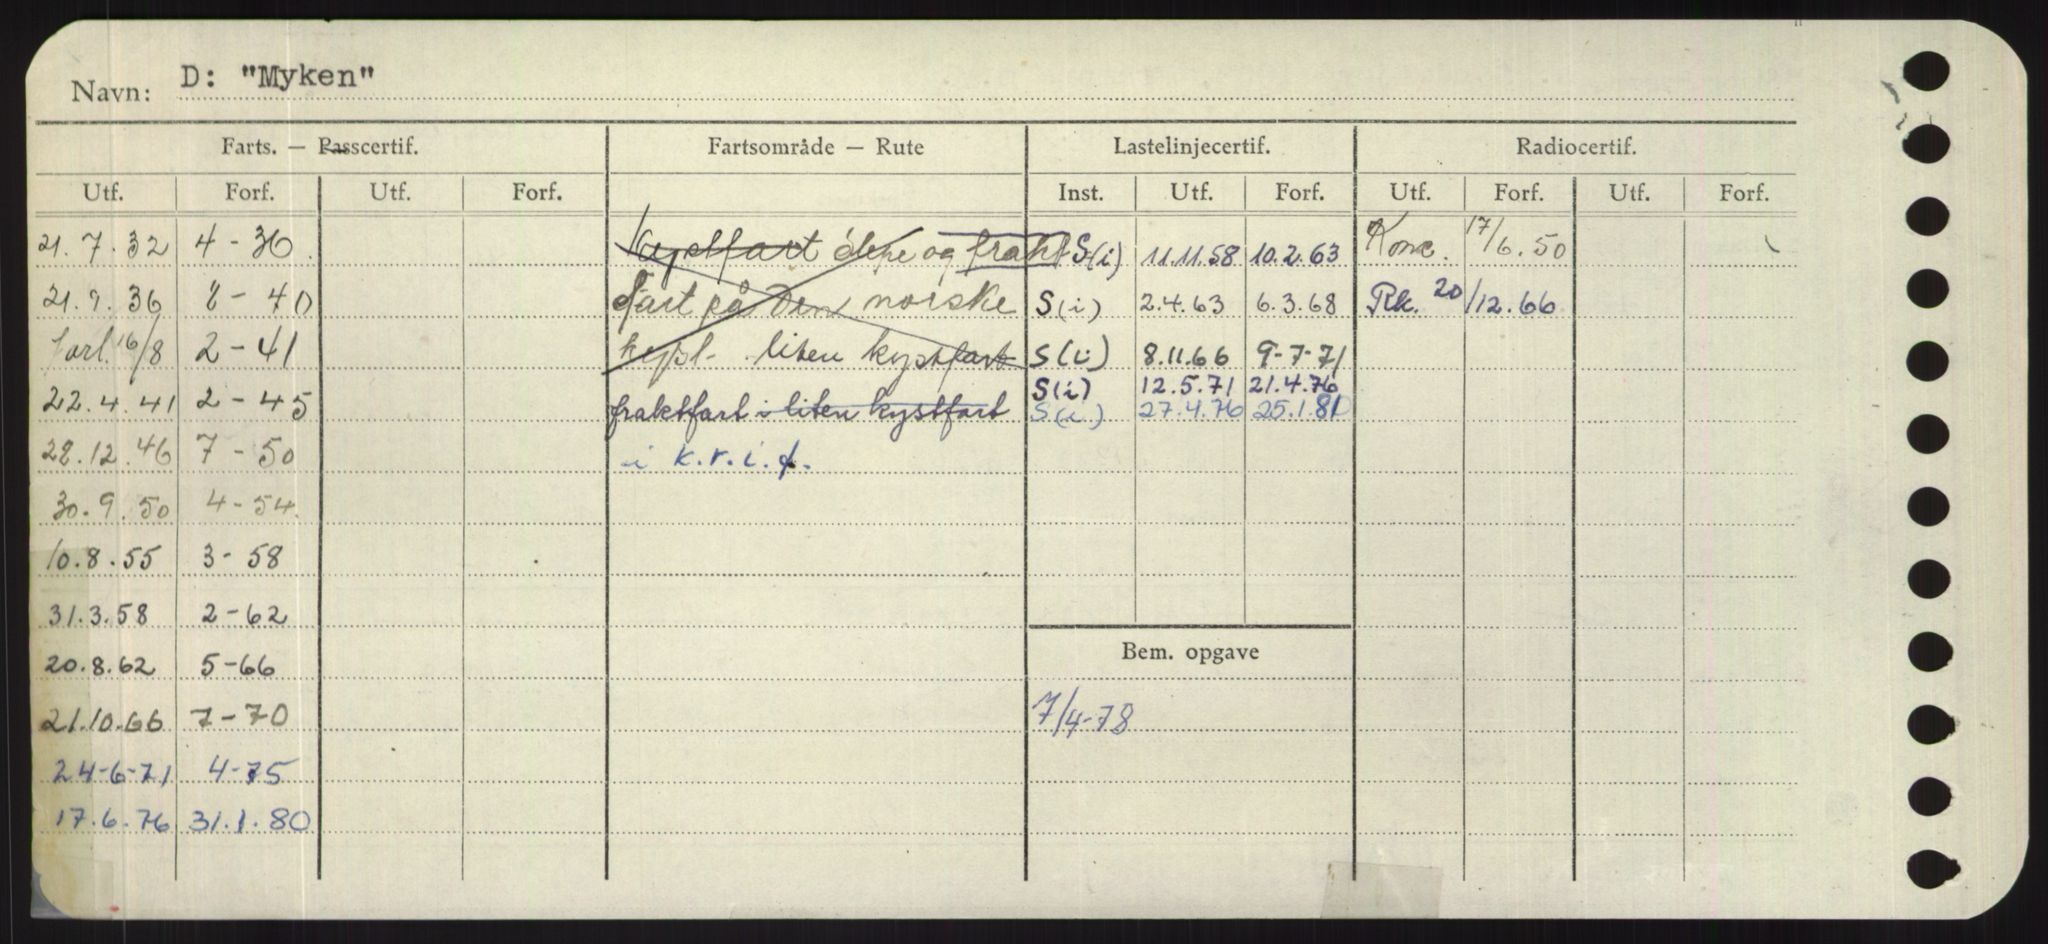 Navn: D: "Myken"
Farts. — Passcertif. Fartsområde — Rute Lastelinjecertif. Radiocertif.
Utf. Forf. Utf. Forf. Inst. Utf. Forf. Utf. Forf. Utf. Forf.
21.7.32 4-36 Kystfart og frakt S(i) 11.11.58 10.2.63 Konc. 17/6.50
21.9.36 8-40 fart på den norske S(i) 2.4.63 6.3.68 Rk. 20/12.66
forl. 16/8 2-41 kyst- liten kystfart S(i) 8.11.66 9-7-71
S(i) 12.5.71 21.4.76
22.4.41 2-45 fraktfart i liten kystfart S(i) 27.4.76 25.1.81
28.12.46 7-50 i k.r.i.f.
30.9.50 4-54
10.8.55 3-58
31.3.58 2-62
Bem. opgave
20.8.62 5-66
21.10.66 7-70 7/4-78
24-6-71 4-75
17.6.76 31.1.80